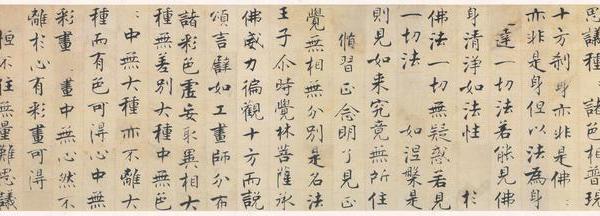 思議種〻諸色相普現
十方剎身亦非是佛〻
亦非是身但以法為身
達一切法若能見佛
身清淨如法性 於
佛法一切無疑惑若見
一切法 如涅槃
則見如來究竟無所住
脩習正念明了見正
覺無相無分別是名法
王子尒時覺林菩薩承
佛威力徧觀十方而說
頌言譬如工畫師分布
諸彩色虛妄取異相大
種無差別大種中無色
〻中無大種亦不離大
種而有色可得心中無
彩畫 畫中無心然不
離於心有彩畫可得
恒不住無量難思議